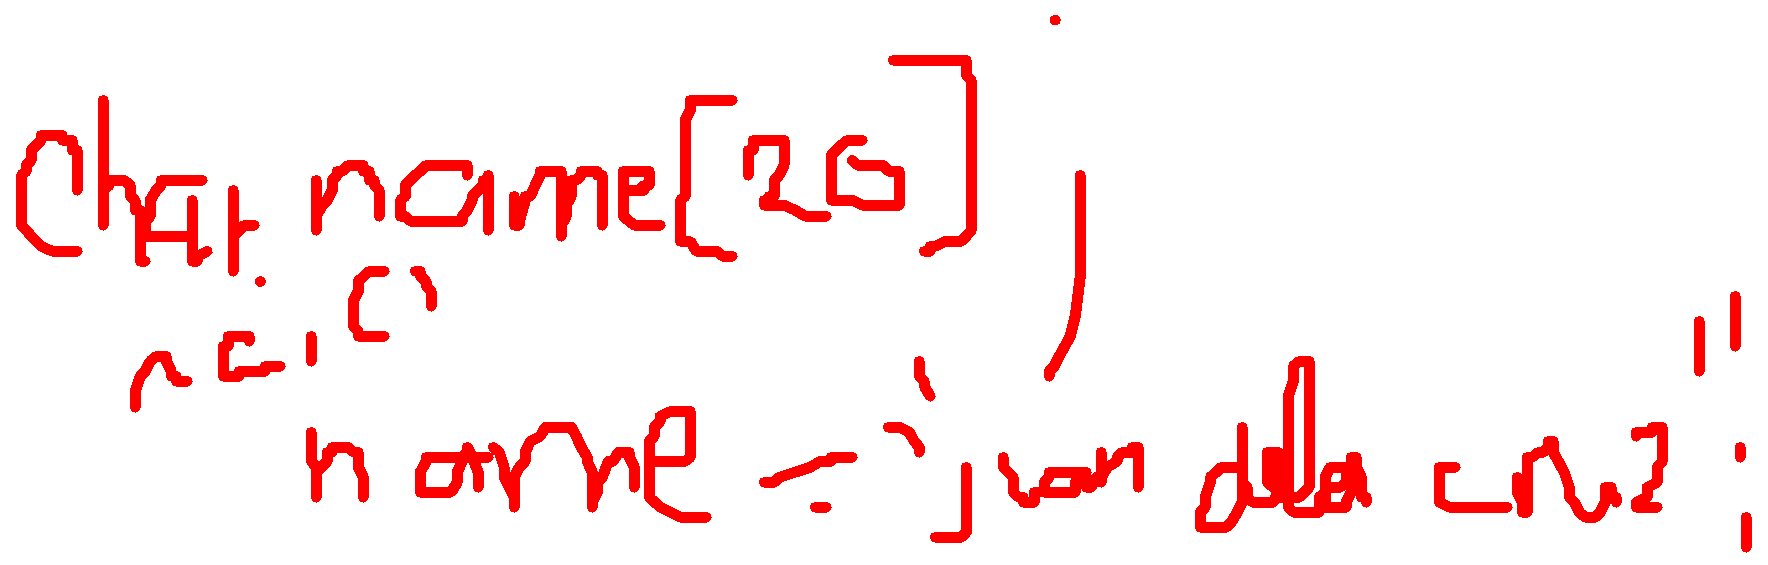 char name[20];
name = "juan dela cruz";